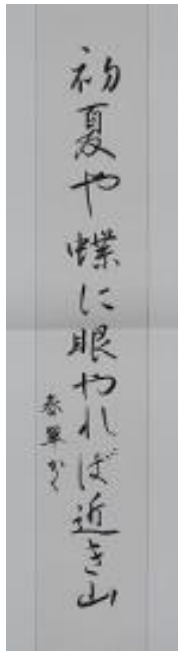 初夏や蝶に眼やれば近き山
春翠かく